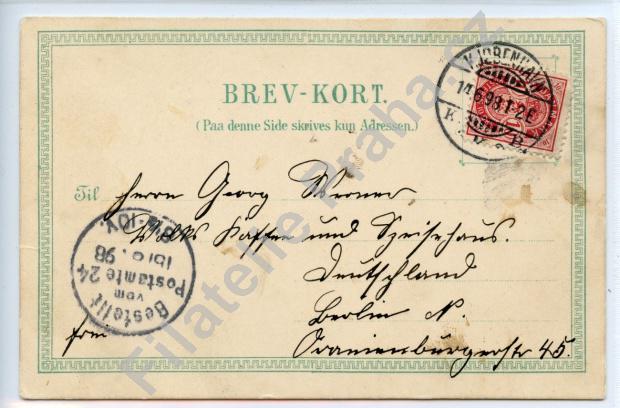 BREV-KORT.
(Paa denne Side skrives kun Adressen.)
KJØBENHAVN
14.6.98.1-2E
K. B.
Til Herrn Georg Werner
Volks Kaffee und Speisehaus.
Deutschland
Berlin N.
frei Oranienburgerstr 45.
Bestellt
vom
Postamte 24
15/6.98
Filatelie Praha.cz